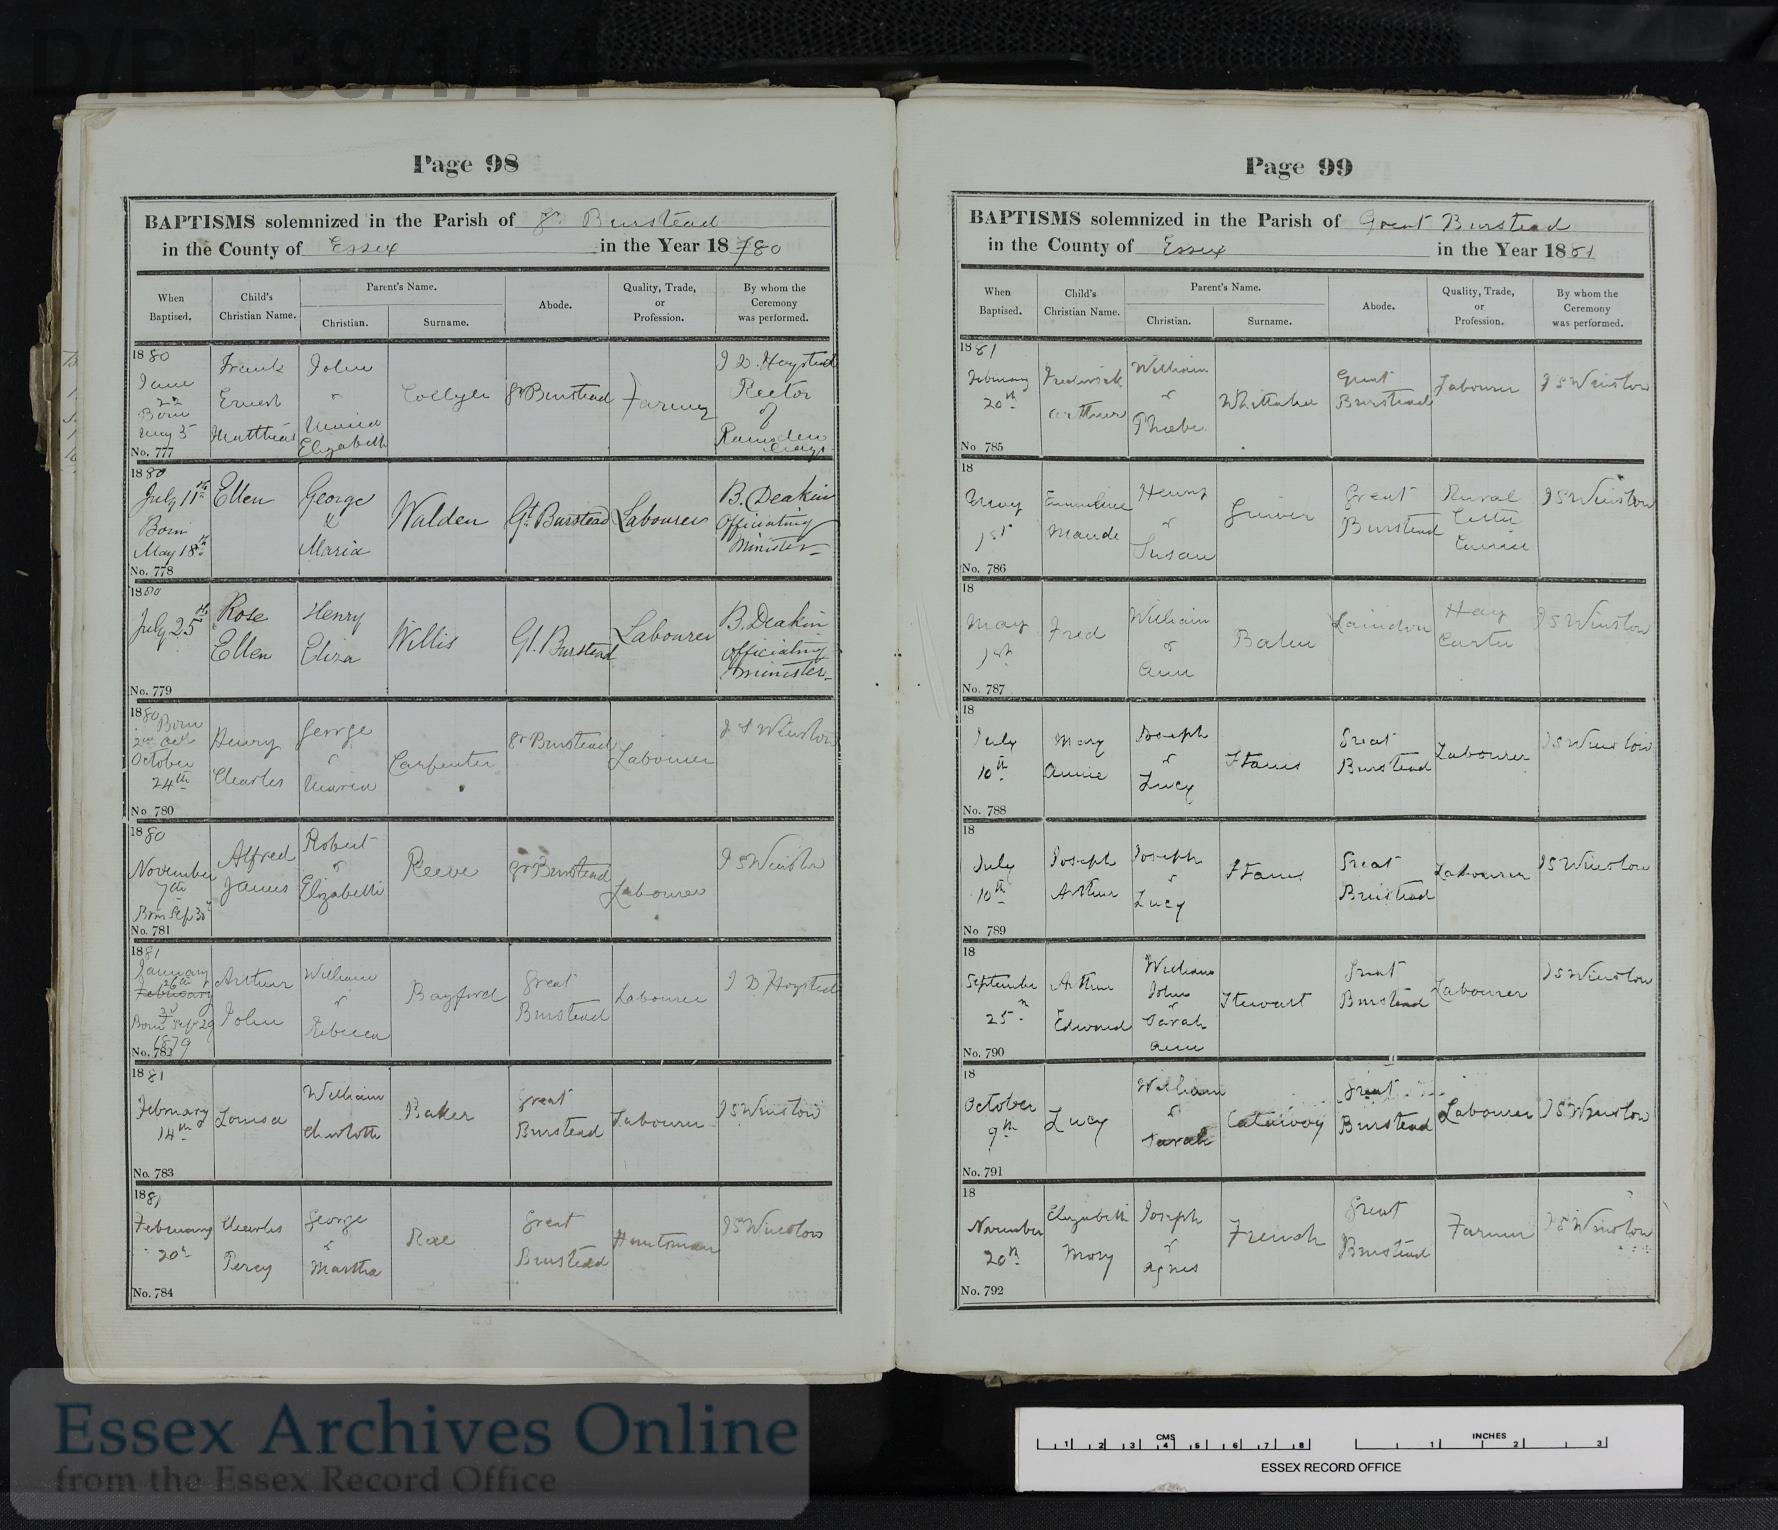 D/P 139/1/14
Page 98
BAPTISMS solemnized in the Parish of Gt Burstead
in the County of Essex in the Year 18780
When Baptised. Child's Christian Name. Parent's Name. Christian. Surname. Abode. Quality, Trade, or Profession. By whom the Ceremony was performed.
1880
June 22
Born May 5
No. 777
Frank
Ernest
Matthias
John
&
Maria
Elizabeth
Gt Burstead
Farmer
Rector
of
Ramsden
1880
July 11th
Born
May 18th
No. 778
Ellen
George
&
Maria
Walden
Gt. Burstead
Labourer
B. Deakin
Officiating
Minister
1880
July 25th
No. 779
Rose
Ellen
Henry
Eliza
Willis
Gt. Burstead
Labourer
B. Deakin
Officiating
Minister
1880
Born
2nd Oct
October
24th
No 780
Henry
Charles
George
&
Maria
Carpenter
Gt Burstead
Labourer
J S Winslow
1880
November
7th
Born Sep 30
No. 781
Alfred
James
Robert
&
Elizabeth
Reeve
Gt Burstead
Labourer
J S Winslow
1881
January
26th
February
Born Sep 29
1879
No. 782
Arthur
John
William
&
Rebecca
Bayford
Great
Burstead
Labourer
1881
February
14th
No. 783
Louisa
William
Charlotte
Baker
Great
Burstead
Labourer
J S Winslow
1881
February
20th
No. 784
Charles
Percy
George
&
Martha
Rae
Great
Burstead
Huntsman
J S Winslow
Page 99
BAPTISMS solemnized in the Parish of Great Burstead
in the County of Essex in the Year 1881
When Baptised. Child's Christian Name. Parent's Name. Christian. Surname. Abode. Quality, Trade, or Profession. By whom the Ceremony was performed.
1881
February
20th
No 785
Frederick
Arthur
William
&
Phoebe
Whittaker
Great
Burstead
Labourer
J S Winslow
18
May
1st
No. 786
Emmeline
Maude
Henry
&
Susan
Great
Burstead
Rural
Letter
Carrier
J S Winslow
18
May
1st
No. 787
Fred
William
&
Ann
Laindon
Hay
Carter
J S Winslow
18
July
10th
No. 788
Mary
Annie
Joseph
&
Lucy
Stains
Great
Burstead
Labourer
J S Winslow
18
July
10th
No 789
Joseph
Arthur
Joseph
&
Lucy
Stains
Great
Burstead
Labourer
J S Winslow
18
September
25th
No. 790
Arthur
Edward
William
John
&
Sarah
Ann
Stewart
Great
Burstead
Labourer
J S Winslow
18
October
9th
No. 791
Lucy
William
&
Sarah
Cataway
Great
Burstead
Labourer
J S Winslow
18
November
20th
No. 792
Elizabeth
Mary
Joseph
&
Agnes
French
Great
Burstead
Farmer
J S Winslow
Essex Archives Online
from the Essex Record Office
CMS
1 2 3 4 5 6 7 8
INCHES
1 2 3
ESSEX RECORD OFFICE